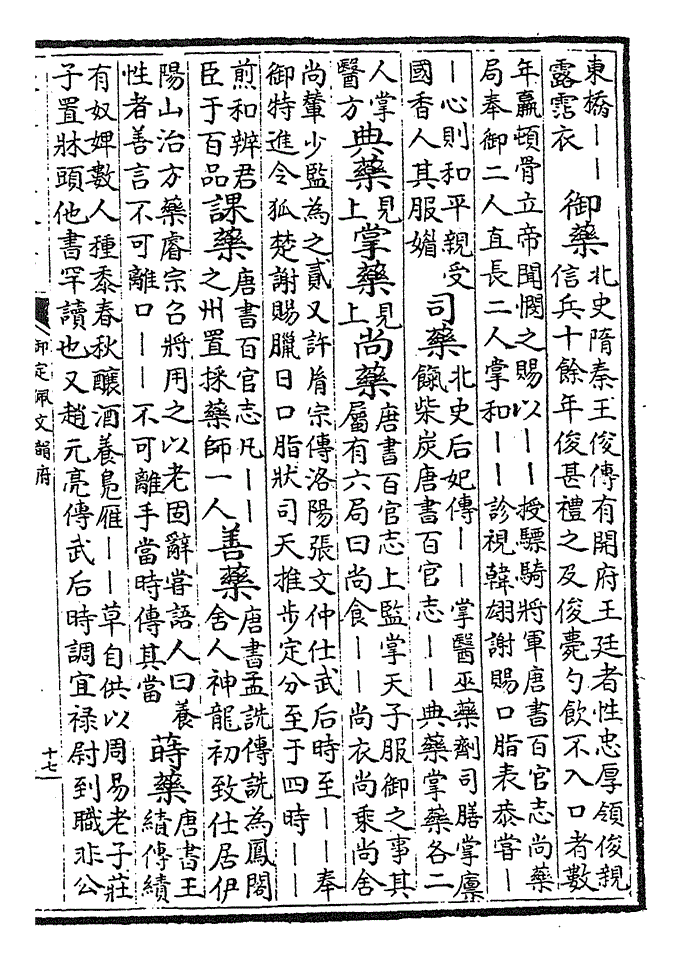 東橋——
露霑衣
御藥
北史隋秦王俊傳有開府王廷者性忠厚領俊親
信兵十餘年俊甚禮之及俊薨勺飲不入口者數
年羸頓骨立帝聞憫之賜以——授驃騎將軍唐書百官志尚藥
局奉御二人直長二人掌和——診視韓翃謝賜口脂表恭嘗—
—心則和平親受
國香人其服媚
司藥
北史后妃傳——掌醫巫藥劑司膳掌廩
餼柴炭唐書百官志——典藥掌藥各二
人掌
醫方
典藥
見
上
掌藥
見
上
尚藥
唐書百官志上監掌天子服御之事其
屬有六局曰尚食——尚衣尚乘尚舍
尚輦少監為之貳又許胤宗傳洛陽張文仲仕武后時至——奉
御特進令狐楚謝賜臘日口脂狀司天推步定分至于四時——
煎和辨君
臣于百品
課藥
唐書百官志凡——
之州置採藥師一人
善藥
唐書孟詵傳詵為鳳閣
舍人神龍初致仕居伊
陽山治方藥睿宗召將用之以老固辭嘗語人曰養
性者善言不可離口——不可離手當時傳其當
蒔藥
唐書王
績傳績
有奴婢數人種黍春秋釀酒養鳧雁——草自供以周易老子莊
子置牀頭他書罕讀也又趙元亮傳武后時調宜禄尉到職非公
御定佩文韻府
十七